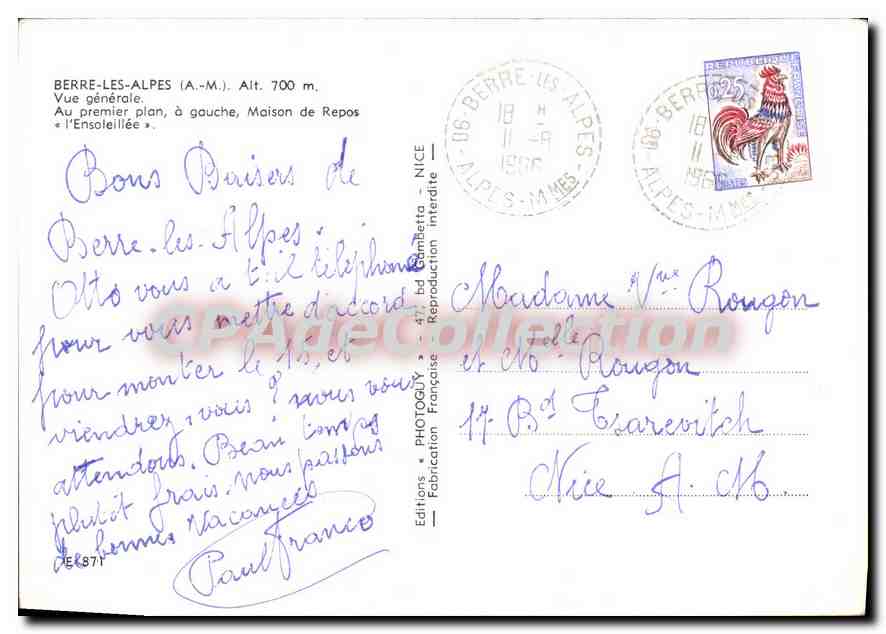 BERRE-LES-ALPES (A.-M.). Alt. 700 m.
Vue générale.
Au premier plan, à gauche, Maison de Repos
« l'Ensoleillée ».
Bons Baisers de
Berre-les-Alpes.
Otto vous a t'il téléphoné
pour vous mettre d'accord
pour monter le 15, et
viendrez-vous ? nous vous
attendons. Beau temps
plutôt frais. nous passons
de bonnes vacances
Paul Franco
871
Editions « PHOTOGUY » - 47, bd Gambetta - NICE
Fabrication Française - Reproduction interdite
06 - BERRE-LES-ALPES -
18 H
11 - 8
1966
ALPES-MMES
06 - BERRE
18
11
196
ALPES-MMES
REPUBLIQUE FRANÇAISE
0,25
Madame Vve Rougon
et Melle Rougon
17 Bd Tsarevitch
Nice A. M.
CPAdeCollection